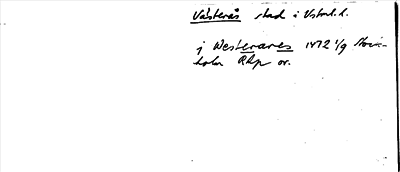 Västerås stad i Vstml.l.
j Westerares 1472 1/9 Stock-
holm RAp or.